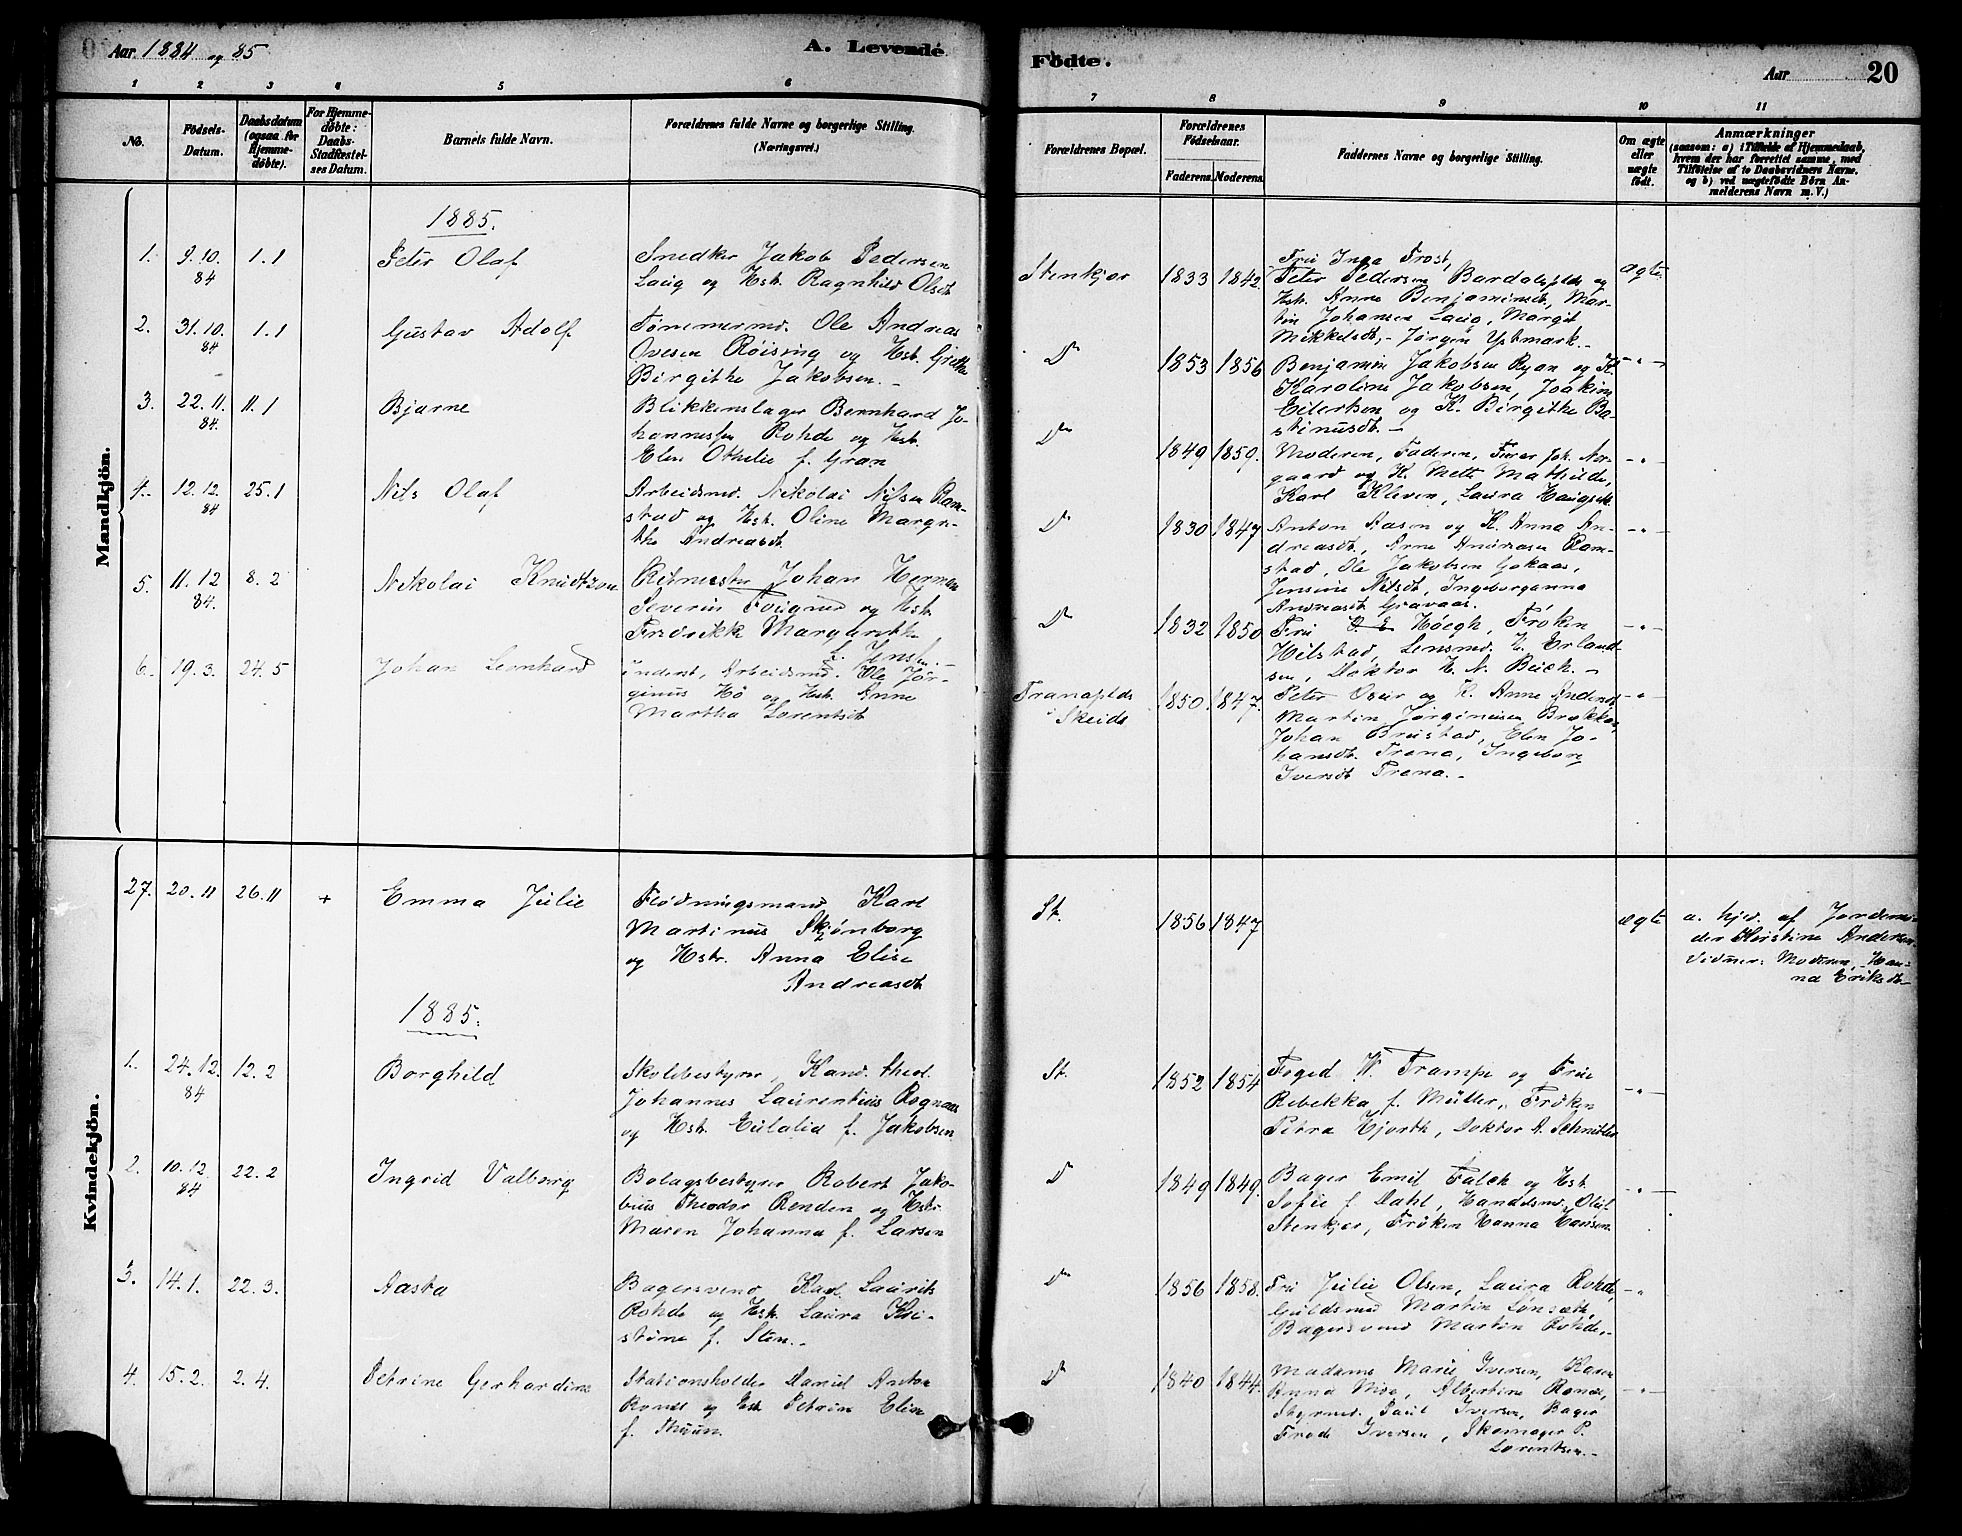 Aar 1884 og 85
A. Levende
Födte.
Aar
20
1 2 3 4 5 6
7 8 9 10 11
No.
Födsels-Datum.
Daabsdatum (ogsaa for Hjemme-döbte).
For Hjemme-döbte: Daabs-Stadfæstel-ses Datum.
Barnets fulde Navn.
Forældrenes fulde Navne og borgerlige Stilling.
(Næringsvei.)
Forældrenes Bopæl.
Forældrenes Födselsaar.
Faderens. Moderens.
Faddernes Navne og borgerlige Stilling.
Om ægte eller uægte födt.
Anmærkninger
(saasom: a) i Tilfælde af Hjemmedaab,
hvem der har forrettet samme, med
Tilföielse af to Daabsvidners Navne,
og b) ved uægtefödte Börn An-
melderens Navn m. V.)
Mandkjön.
1885.
1. 9.10. 84 1.1 Peter Olaf
Snedker Jakob Pedersen
Laug og Hst. Ragnhild Olsdt
Stenkjer 1833 1842.
Fru Inga Frost,
Peter Pedersen Bardalsplds og
Hst. Anne Benjaminsdt, Mar-
tin Johansen Laug, Margit
Mikkelsdt, Jørgen Ystmark.
ægte
2. 31.10. 84 1.1 Gustav Adolf
Tømmermd. Ole Andreas
Ovesen Røising og Hst. Grethe
Birgithe Jakobsen.
Do 1853 1856
Benjamin Jakobsen Ryan og K.
Karoline Jakobsen, Joakim
Eilertsen og K. Birgithe Ba-
stinusdt.
-"-
3. 22.11. 84. 11.1 Bjarne
Blikkenslager Bernhard Jo-
hannessen Rohde og Hst.
Elen Othelie f. Gran
Do 1849 1859.
Moderen, Faderen, Ferer Joh. Aar-
gaard og K. Mette Mathilde,
Karl Kleven, Laura Haugseth
-"-
4. 12.12. 84 25.1 Nils Olaf
Arbeidsmd. Nikolai Nilsen Ram-
stad og Hst. Oline Margre-
the Andreasdt
Do 1830 1847
Anton Aasen og K. Anna An-
dreasdt, Arne Andreasen Ram-
stad, Ole Jakobsen Gokaas,
Jensine Nilsdt, Ingeborganna
Andreasdt Gravaas.
-"-
5. 11.12 84. 8.2 Nikolai Knudtzon
Ritmester Johan Herman
Severin Foigner og Hst.
Fredrikke Margrethe
f. Jensen.
Do 1832 1850
Fru Høegh, Frøken
Hilstad, Lensmd. H. Erland-
sen, Doktor H. N. Beich.
-"-
6. 19.3. 24.5 Johan Leonhard
Inderst, Arbeidsmd. Ole Jør-
ginus Hø og Hst. Anne
Martha Lorentsdt
Tranaplds i Skeids 1850. 1847.
Peter Over og K. Anne Andersdt
Martin Jørginusen Brækken,
Johan Brustad, Elen Jo-
hansdt. Trana, Ingeborg
Iversdt Trana.
-"-
Kvindekjön.
27. 20.11 26.11 + Emma Julie
Flødningsmand Karl
Martinus Skjønborg
og Hstr. Anna Elise
Andreasdt
St. 1856 1847
ægte
a. hjd. af Jordemo-
der Kirstine Andersen
Vidner: Moderen, Han-
na Eriksdt.
1885.
1. 24.12. 84 12.2 Borghild
Skolebestyrer, Kand. theol.
Johannes Laurentius Rognaas
og Hst. Eulalia f. Jakobsen
St. 1852 1854
Foged W. Trampe og Frue
Rebekka f. Müller, Frøken
Petra Hjorth, Doktor A. Schnitler
-"-
2. 10.12 84 22.2 Ingrid Valborg
Bolagsbestyrer Robert Jako-
bius Theodor Renden og Hstr.
Maren Johanna f. Larsen
Do 1849 1849.
Bager Emil Falck og Hst.
Sofie f. Dahl, Handelsmd. Oluf
Stenkjer, Frøken Hanna Hansen.
-"-
3. 14.1. 22.3. Aasta
Bagersvend Karl Laurits
Rohde og Hst. Laura Kri-
stine f. Sten.
Do 1856 1858.
Fru Julie Olsen, Laura Rohde,
Guldsmed Martin Lønsæth,
Bagersvend Martin Rohde.
-"-
4. 15.2. 2.4. Petrine Gerhardine
Stationsholder Daniel Anton
Rones og Hst. Petrine Elise
f. Thuun.
Do 1840 1844.
Madame Marie Iversen, Karen
Anna Moe, Albertine Rones,
Styrmd. Paul Iversen, Bager
Frode Iversen, Skomager P.
Lorentsen.
-"-